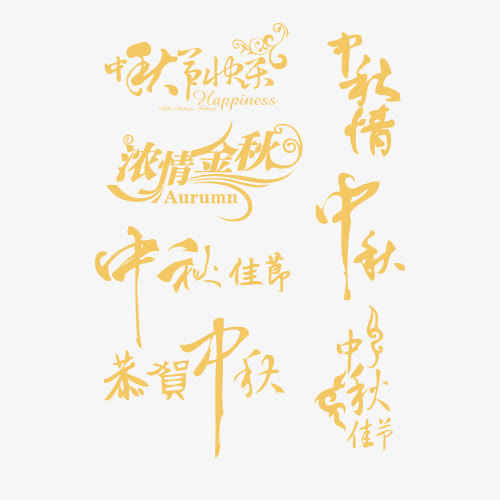 中秋节快乐
Happiness
浓情金秋
Aurumn
中秋佳節
恭賀中秋
中秋情
中秋
中秋佳节